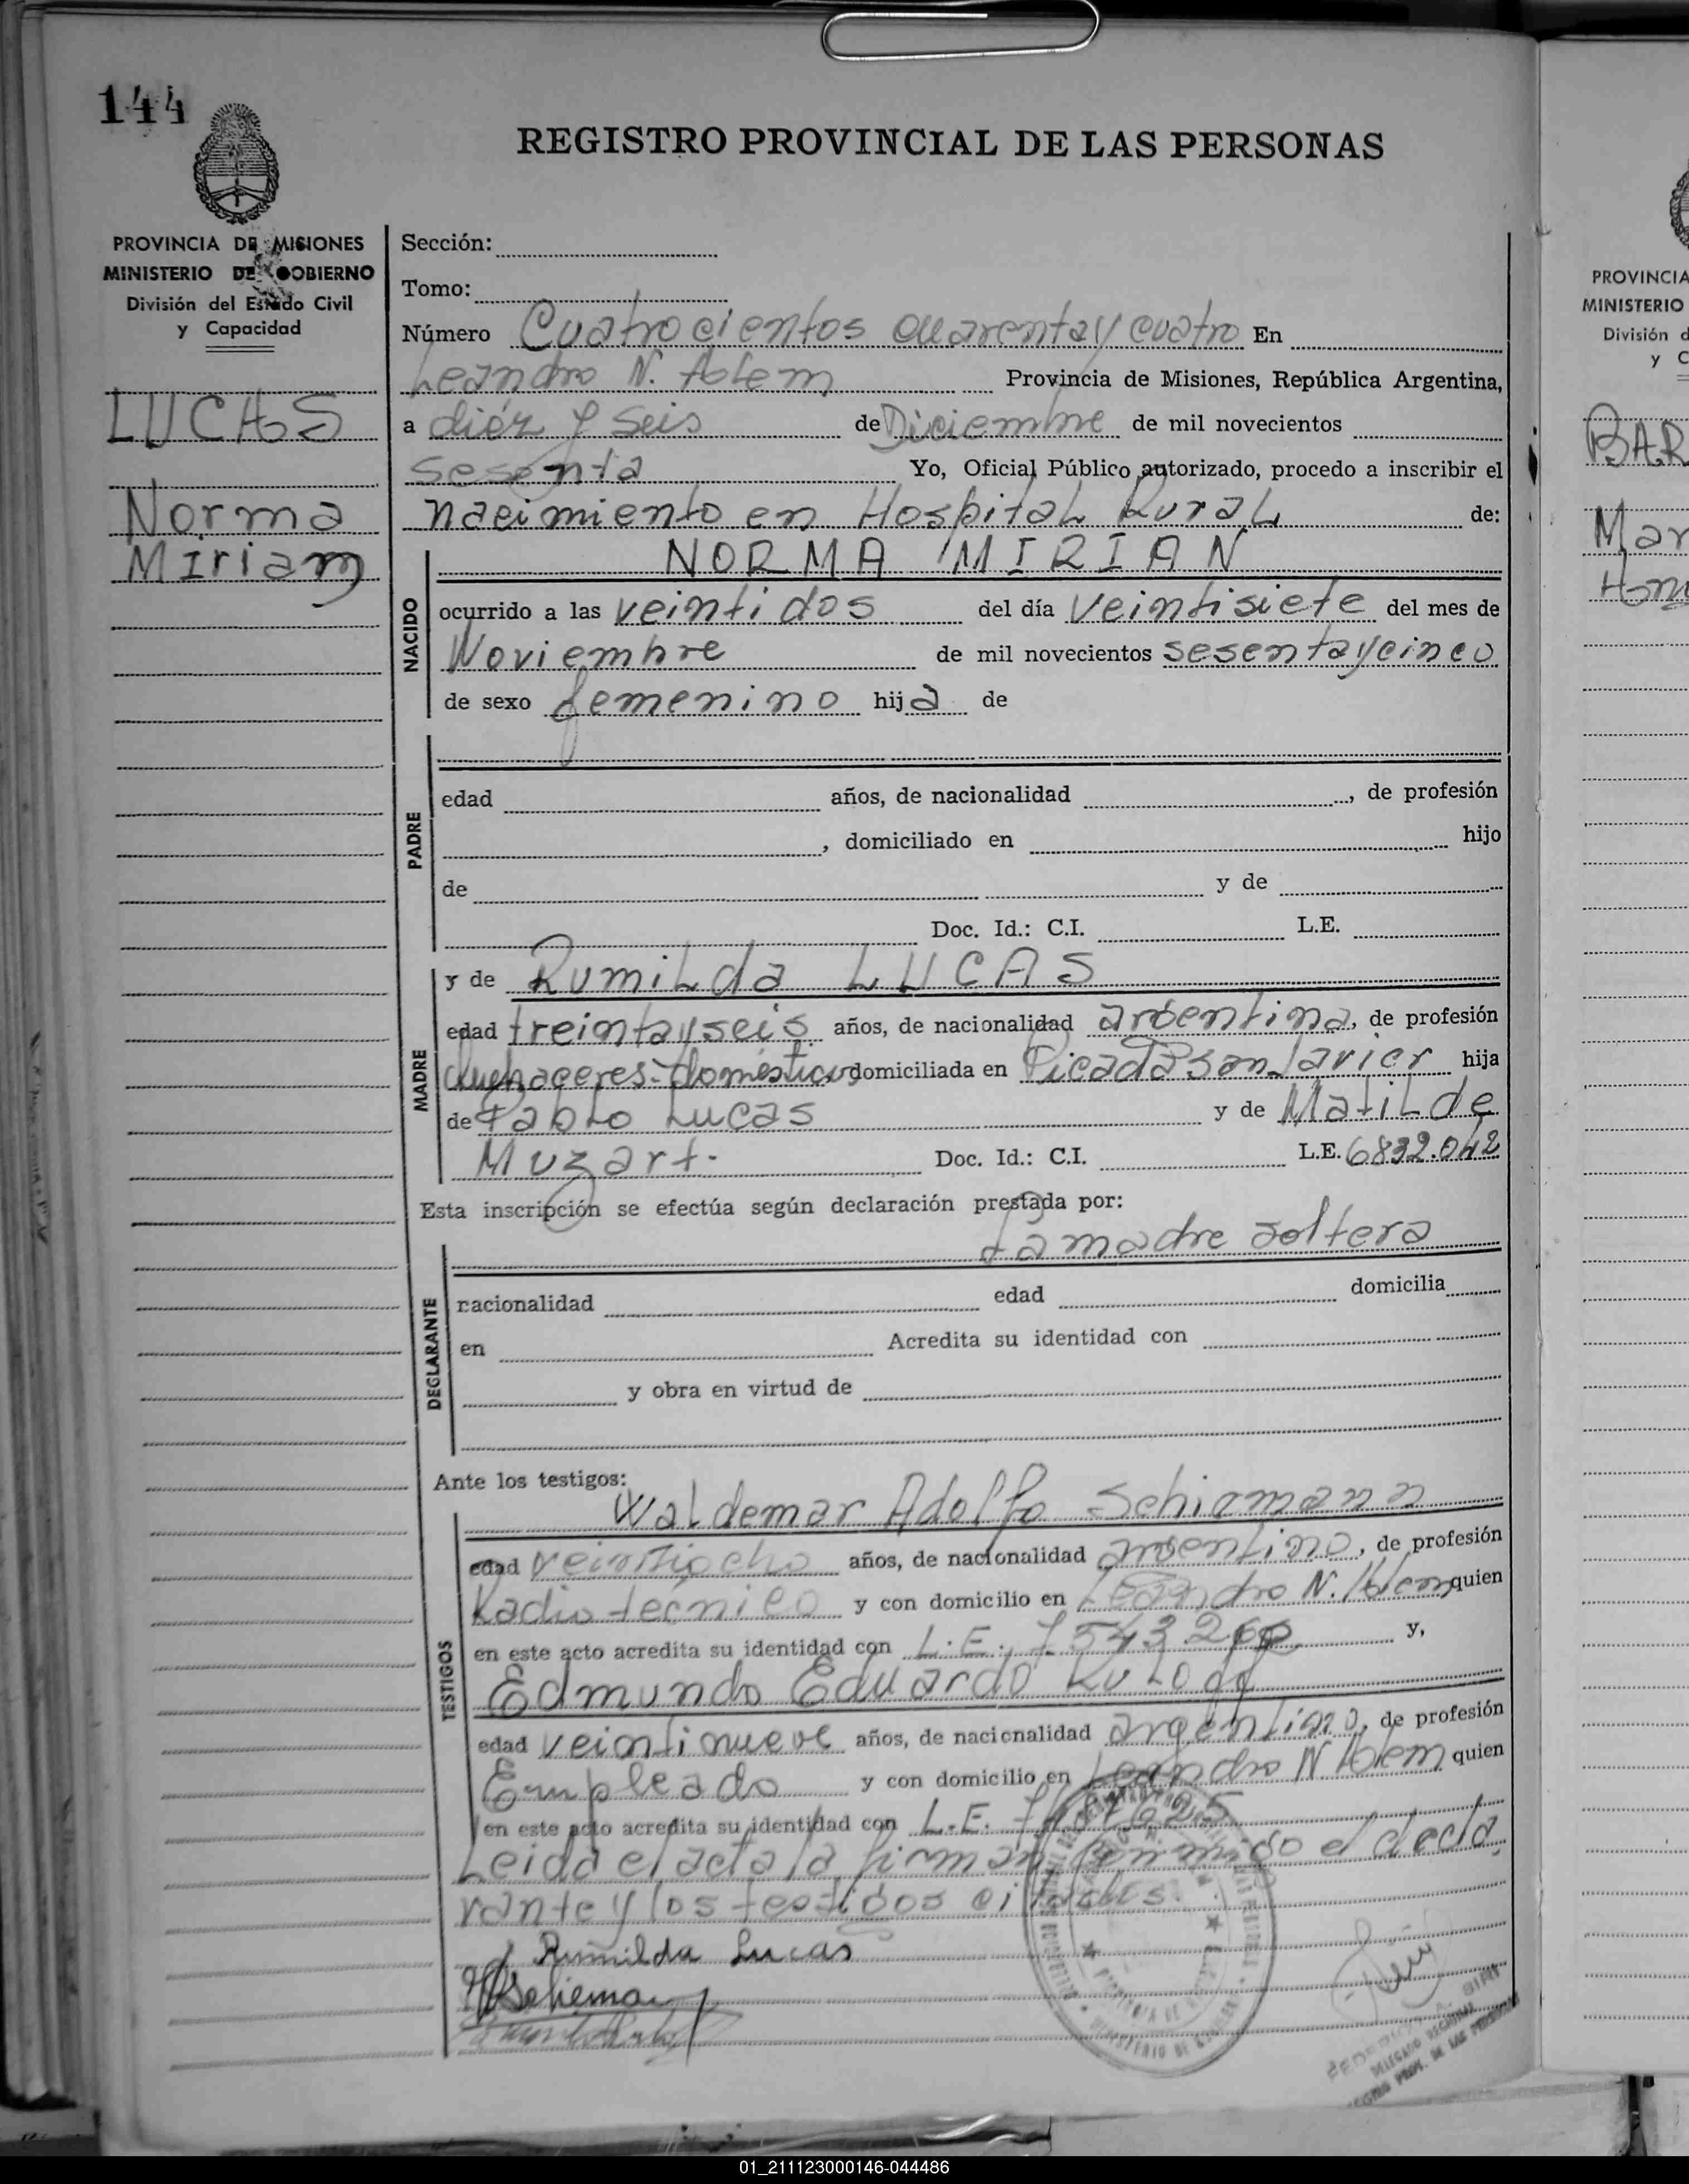 144
REGISTRO PROVINCIAL DE LAS PERSONAS
PROVINCIA DE MISIONES
MINISTERIO DE GOBIERNO
División del Estado Civil
y Capacidad
LUCAS
Norma
Miriam
Sección:
Tomo:
Número Cuatrocientos cuarenta y cuatro En
Leandro N. Alem Provincia de Misiones, República Argentina,
a diéz y seis de Diciembre de mil novecientos
sesenta Yo, Oficial Público autorizado, procedo a inscribir el
nacimiento en Hospital Rural de:
NACIDO
NORMA MIRIAN
ocurrido a las veintidos del día veintisiete del mes de
Noviembre de mil novecientos sesentaycinco
de sexo femenino hija de
PADRE
edad años, de nacionalidad , de profesión
, domiciliado en hijo
de y de
Doc. Id.: C.I. L.E.
MADRE
y de Rumilda LUCAS
edad treintayseis años, de nacionalidad argentina, de profesión
quehaceres-domésticos domiciliada en Picada San Javier hija
de Pablo Lucas y de Matilde
Muzart. Doc. Id.: C.I. L.E. 6832.042
Esta inscripción se efectúa según declaración prestada por:
La madre soltera
DECLARANTE
nacionalidad edad domicilia
en Acredita su identidad con
y obra en virtud de
Ante los testigos:
TESTIGOS
Waldemar Adolfo Schiemann
edad veintiocho años, de nacionalidad argentino, de profesión
Radiotecnico y con domicilio en Leandro N. Alem quien
en este acto acredita su identidad con L.E. y,
Edmundo Eduardo
edad veintinueve años, de nacionalidad argentino, de profesión
Empleado y con domicilio en Leandro N Alem quien
en este acto acredita su identidad con L.E.
Leida el acta la firman conmigo el decla
rante y los testigos citados.
Rumilda Lucas
DELEGADO REGIONAL
PROV. DE LAS PERSONAS
PROVINCIA
MINISTERIO
División d
y C
BAR
Mar
01_211123000146-044486